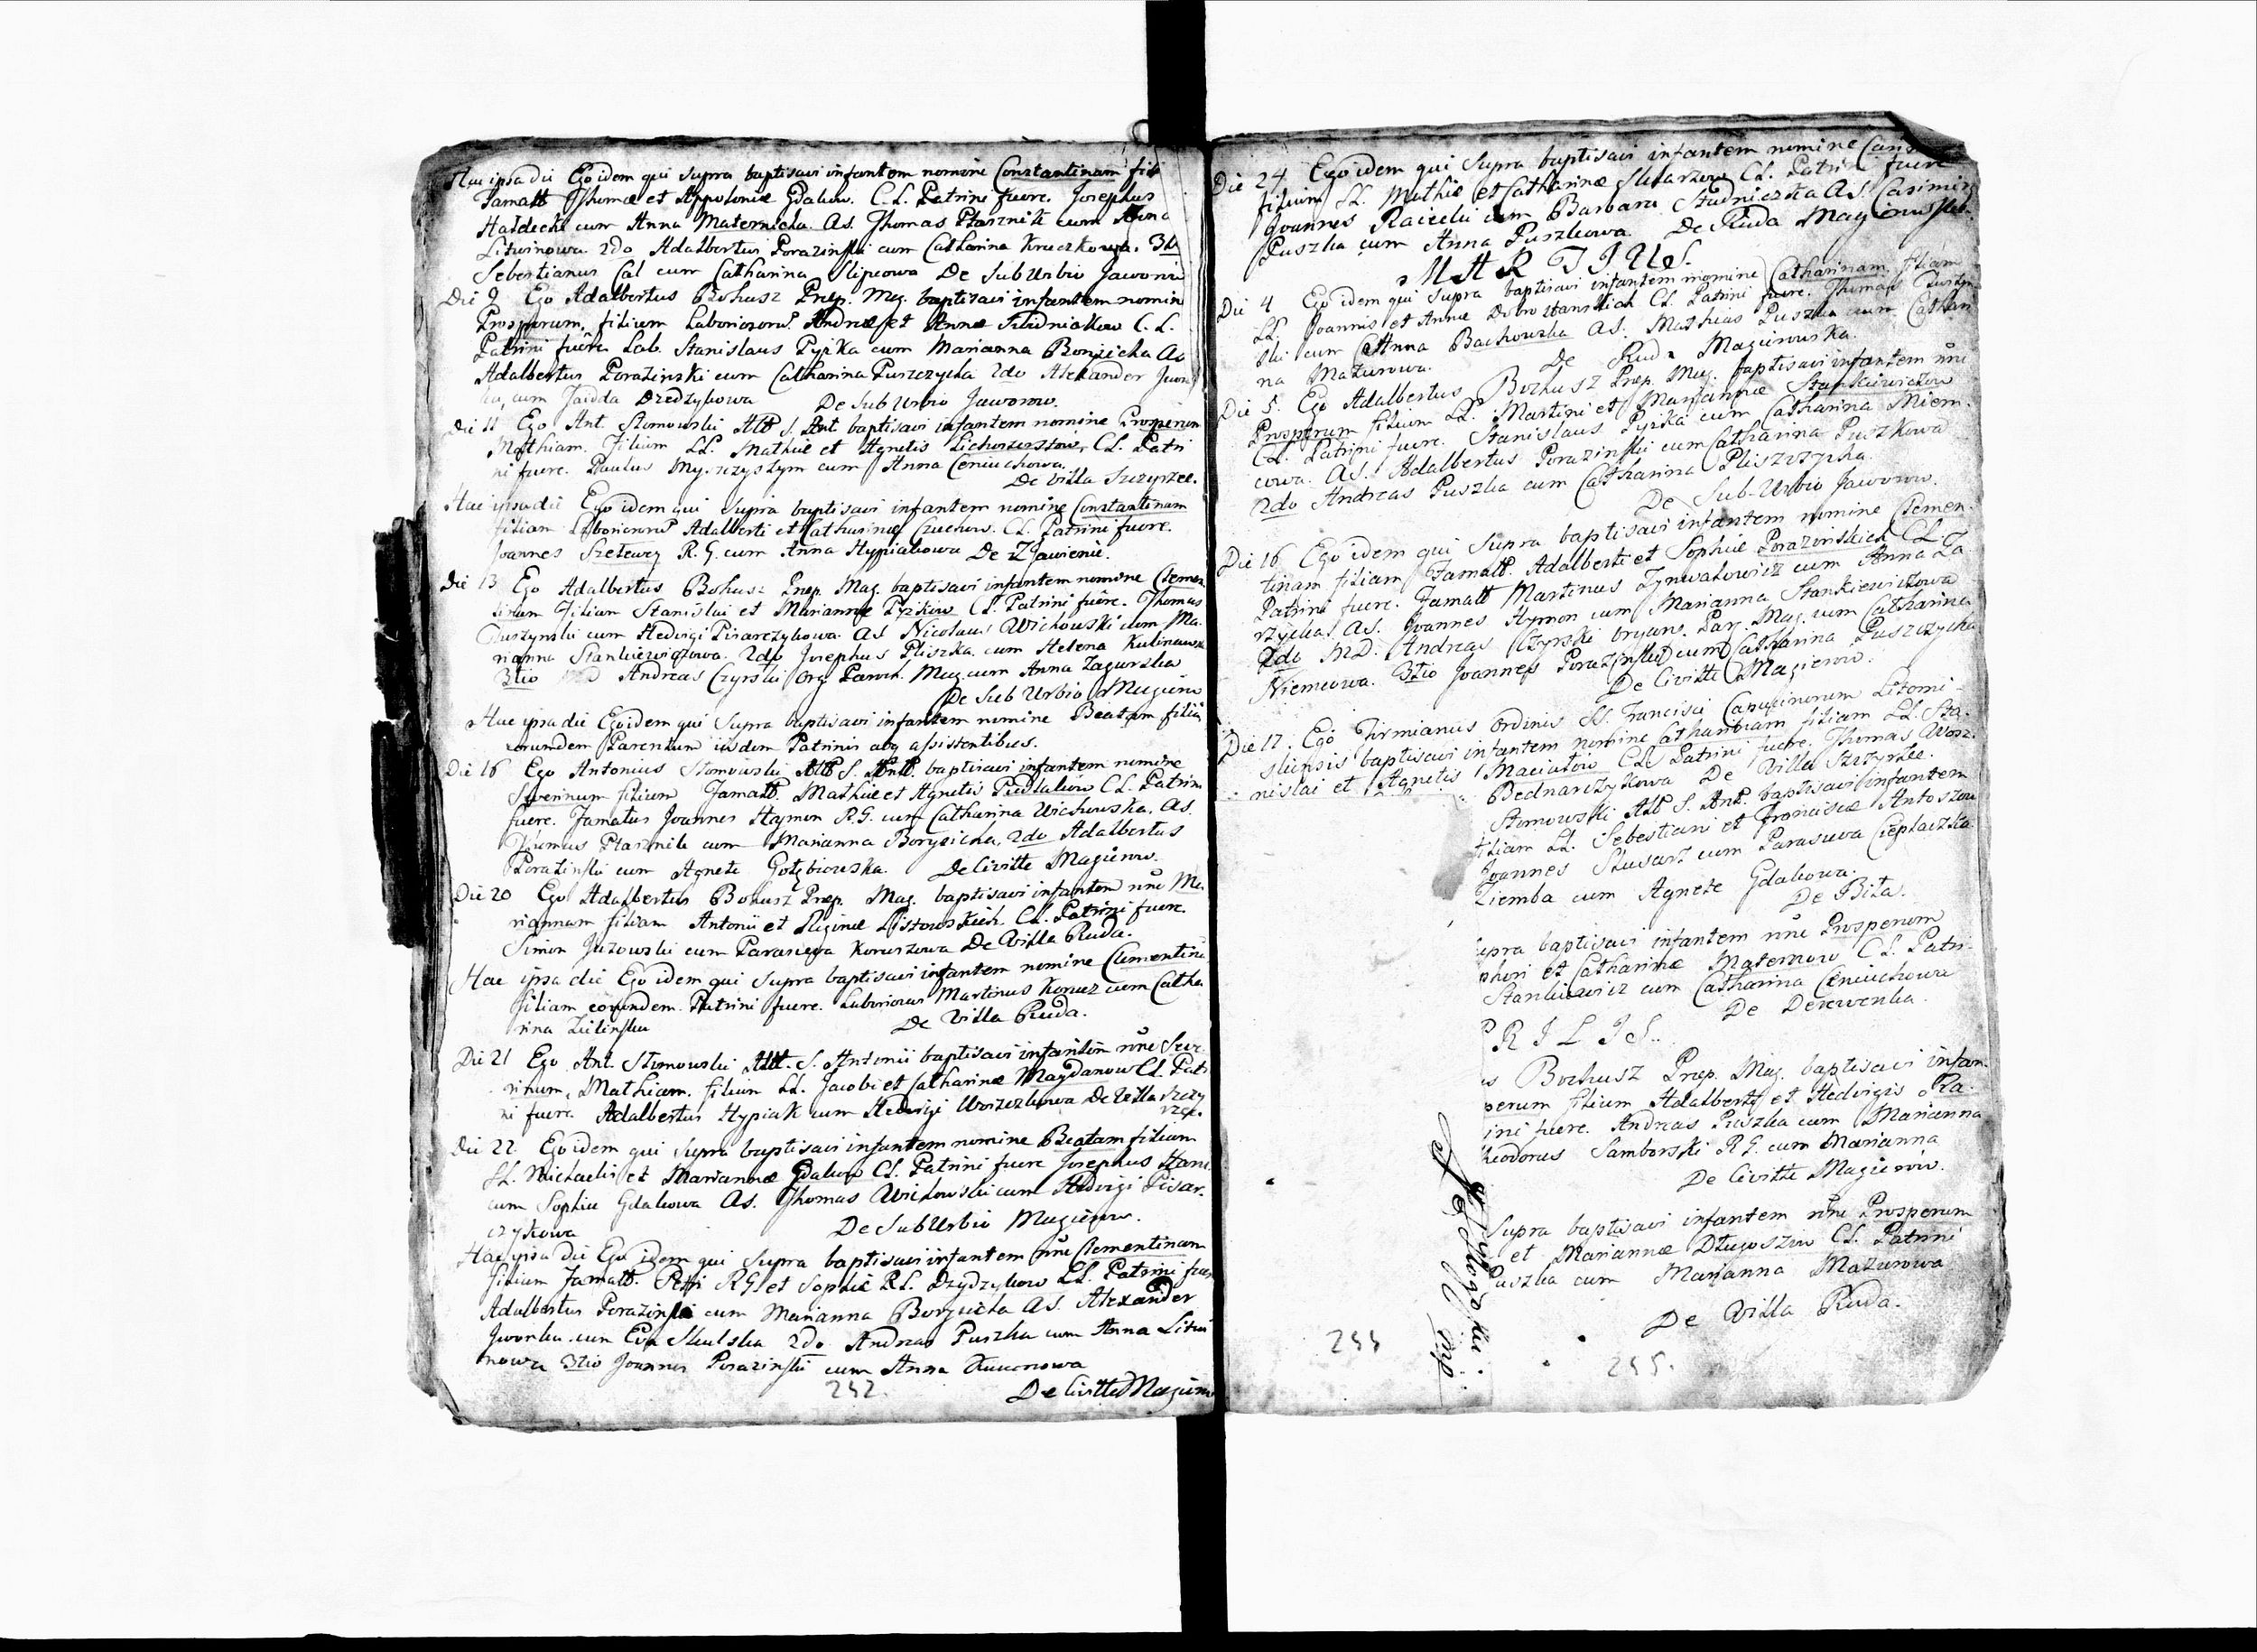 Hac ipsa die Ego idem qui supra baptisavi infantem nomine Constantinam fili
Famatt Thomæ et Appoloniæ Gdakow. C.L. Patrini fuere. Josephus
Hałdecki cum Anna Maternicka. As. Thomas Ptasznik cum Anna
Litwinowa 2do Adalbertus Porazinski cum Catharina Kruczkowa. 3ti
Sebestianus Cal cum Catharina Slipcowa De Sub Urbio Jaworow
Die 9 Ego Adalbertus Bohusz Præp. Mag. baptisavi infantem nomin
Prosperum, filium Laboriosorũ Andreæ et Annæ C. L.
Patrini fuêre Lab. Stanislaus Pyżka cum Marianna Boryicka As
Adalbertus Porazinski cum Catharina Puszczycka 2do Alexander Jwon
ka, cum Jaidda Dzedzykowa De Sub Urbio Jaworow.
Die 11 Ego Ant. Słomowski Alt S. Ant baptisavi infantem nomine Prosperum
Mathiam. Filium LL. Mathiæ et Agnetis CL. Patri
ni fuere. Paulus cum Anna Ceniuchowa.
De Villa Szczyrzec.
Hac ipsa die Ego idem qui supra baptisavi infantem nomine Constantinam
filiam Laboriosorũ Adalberti et Catharinæ Czuchow. CL. Patrini fuere.
Joannes Szelewey R.G. cum Anna Hypiakowa De Zjawienie.
Die 13 Ego Adalbertus Bohusz Præp. Mag. baptisavi infantem nomine Clemen
tinam Filiam Stanislai et Mariannæ Pyżkow CL. Patrini fuêre. Thomas
Tuszynski cum Hedvigi Pisarczykowa. As Nicolaus Wichowski cum Ma.
rianna Stankiewiczowa. 2do Josephus Pliszka. cum Helena Kulinowska
3tio MD Andreas Czyrski Org Paroch. Mag cum Anna Zagurska
De Sub Urbio Magierow
Hac ipsa die Ego idem qui Supra baptisavi infantem nomine Beatam filiã
eorundem Parentum iisdem Patrinis atq assistentibus.
Die 16 Ego Antonius Słomowski Alt S. Ant. baptisavi infantem nomine
Severinum filium Famatt. Mathiæ et Agnetis CL. Patrin
fuere. Famatus Joannes Hymon R.G. cum Catharina Wichowska. As.
Thomas Ptasznik cum Marianna Boryicka, 2do Adalbertus
Porazinski cum Agnete Gołębiowska. De Civitte Magierow.
Die 20 Ego Adalbertus Bohusz Præp. Mag. baptisavi infantem nñe Ma
riannam filiam Antonii et Reginæ Listowskich. CL. Patrini fuere.
Simon Juzowski cum Parasceva Koruszowa De Villa Ruda.
Hac ipsa die Ego idem qui Supra baptisavi infantem nomine Clementinã
filiam eorundem. Patrini fuere. Laboriosus Martinus Korusz cum Catha
rina Zielinska De Villa Ruda.
Die 21 Ego Ant. Słomowski Alt. S. Antonii baptisavi infantem nñe Seve
rinum, Mathiam. filium LL. Jacobi et Catharinæ Magdanow CL. Patri
ni fuere Adalbertus Hypiak cum Hedvigi Wrzeszkowa De Villa Szczy
rzec.
Die 22. Ego idem qui Supra baptisavi infantem nomine Beatam filiam
LL. Michaelis et Mariannæ Gdakow CL. Patrini fuere Josephus Ham
cum Sophia Gdakowa As. Thomas Wichowski cum Hedvigi Pisar.
czykowa De Sub Urbio Magierow.
Hac ipsa die Ego idem qui Supra baptisavi infantem nñe Clementinam
filiam Famatt. Petri R.G et Sophiæ R.L. Dzydzykow CL. Patrini fuer
Adalbertus Porazinski cum Marianna Boryicka As. Alexander
Jwonka cum Eva Skulska 2do. Andreas Puszka cum Anna Litwi
nowa 3tio Joannes Porazinski cum Anna
De Civitte Magierow
252.
Die 24 Ego idem qui Supra baptisavi infantem nomine
filium LL. Mathiæ et Catharinæ Slusarzow CL. Patrini fuere
Joannes Raicelu cum Barbara Studniczka As. Casimirus
Puszka cum Anna Puszkowa De Ruda Magierowska.
MARTIUS.
Die 4 Ego idem qui Supra baptisavi infantem nomine Catharinam filiam
LL. Joannis et Annæ CL. Patrini fuere. Thomas
ski cum Anna Bachowska As. Mathias Puszka cum Cathari
na Mazurowa. De Ruda Magierowska.
Die 5. Ego Adalbertus Bohusz Præp. Mag. baptisavi infantem nñe
Prosperum filium LL. Martini et Mariannæ Stankiewiczow
CL. Patrini fuere. Stanislaus Pyżka cum Catharina Niem.
cowa. As. Adalbertus Porazinski cum Catharina Puszkowa
2do Andreas Puszka cum Catharina Pliszczycka
De Sub-Urbio Jaworow.
Die 16 Ego idem qui Supra baptisavi infantem nomine Clemen.
tinam filiam Famatt. Adalberti et Sophiæ Porazinskich CL.
Patrini fuere. Famatt Martinus Tyrwałowicz cum Anna Za
rzycka. As. Joannes Hymon cum Marianna Stankiewiczowa
2do MD. Andreas Czyrski organ. Par. Mag. cum Catharina
Niemcowa. 3tio Joannes Porazinski cum Catharina Puszczycka
De Civitte Magierow.
Die 17. Ego Firmianus Ordinis SS. Francisci Capucinorum Litomi
sliensis baptisavi infantem nomine Catharinam filiam LL. Sta.
nislai et Agnetis Maciałow CL. Patrini fuere. Thomas
Bednarczykowa De Villa Szczyrzec.
Słomowski Alt S. Ant. baptisavi infantem
filiam LL. Sebestiani et Franciscæ Antoszow
Joannes Slusarz cum Parasceva Cieplaczka
Ziemba cum Agnete Gdakowa.
De Biła.
upra baptisavi infantem nñe Prosperum
phori et Catharinæ Maternow CL. Patri
Stankiewicz cum Catharina Ceniuchowa
De Derewenka.
PRILIS.
us Bochusz Præp. Mag. baptisavi infan.
perum filium Adalberti et Hedvigis Pra.
ini fuere. Andreas Puszka cum Marianna
heodorus Samborski R.G. cum Marianna
De Civitte Magierow.
Supra baptisavi infantem nñe Prosperum
et Mariannæ Długoszow CL. Patrini
Puszka cum Marianna Mazurowa
De Villa Ruda.
255.